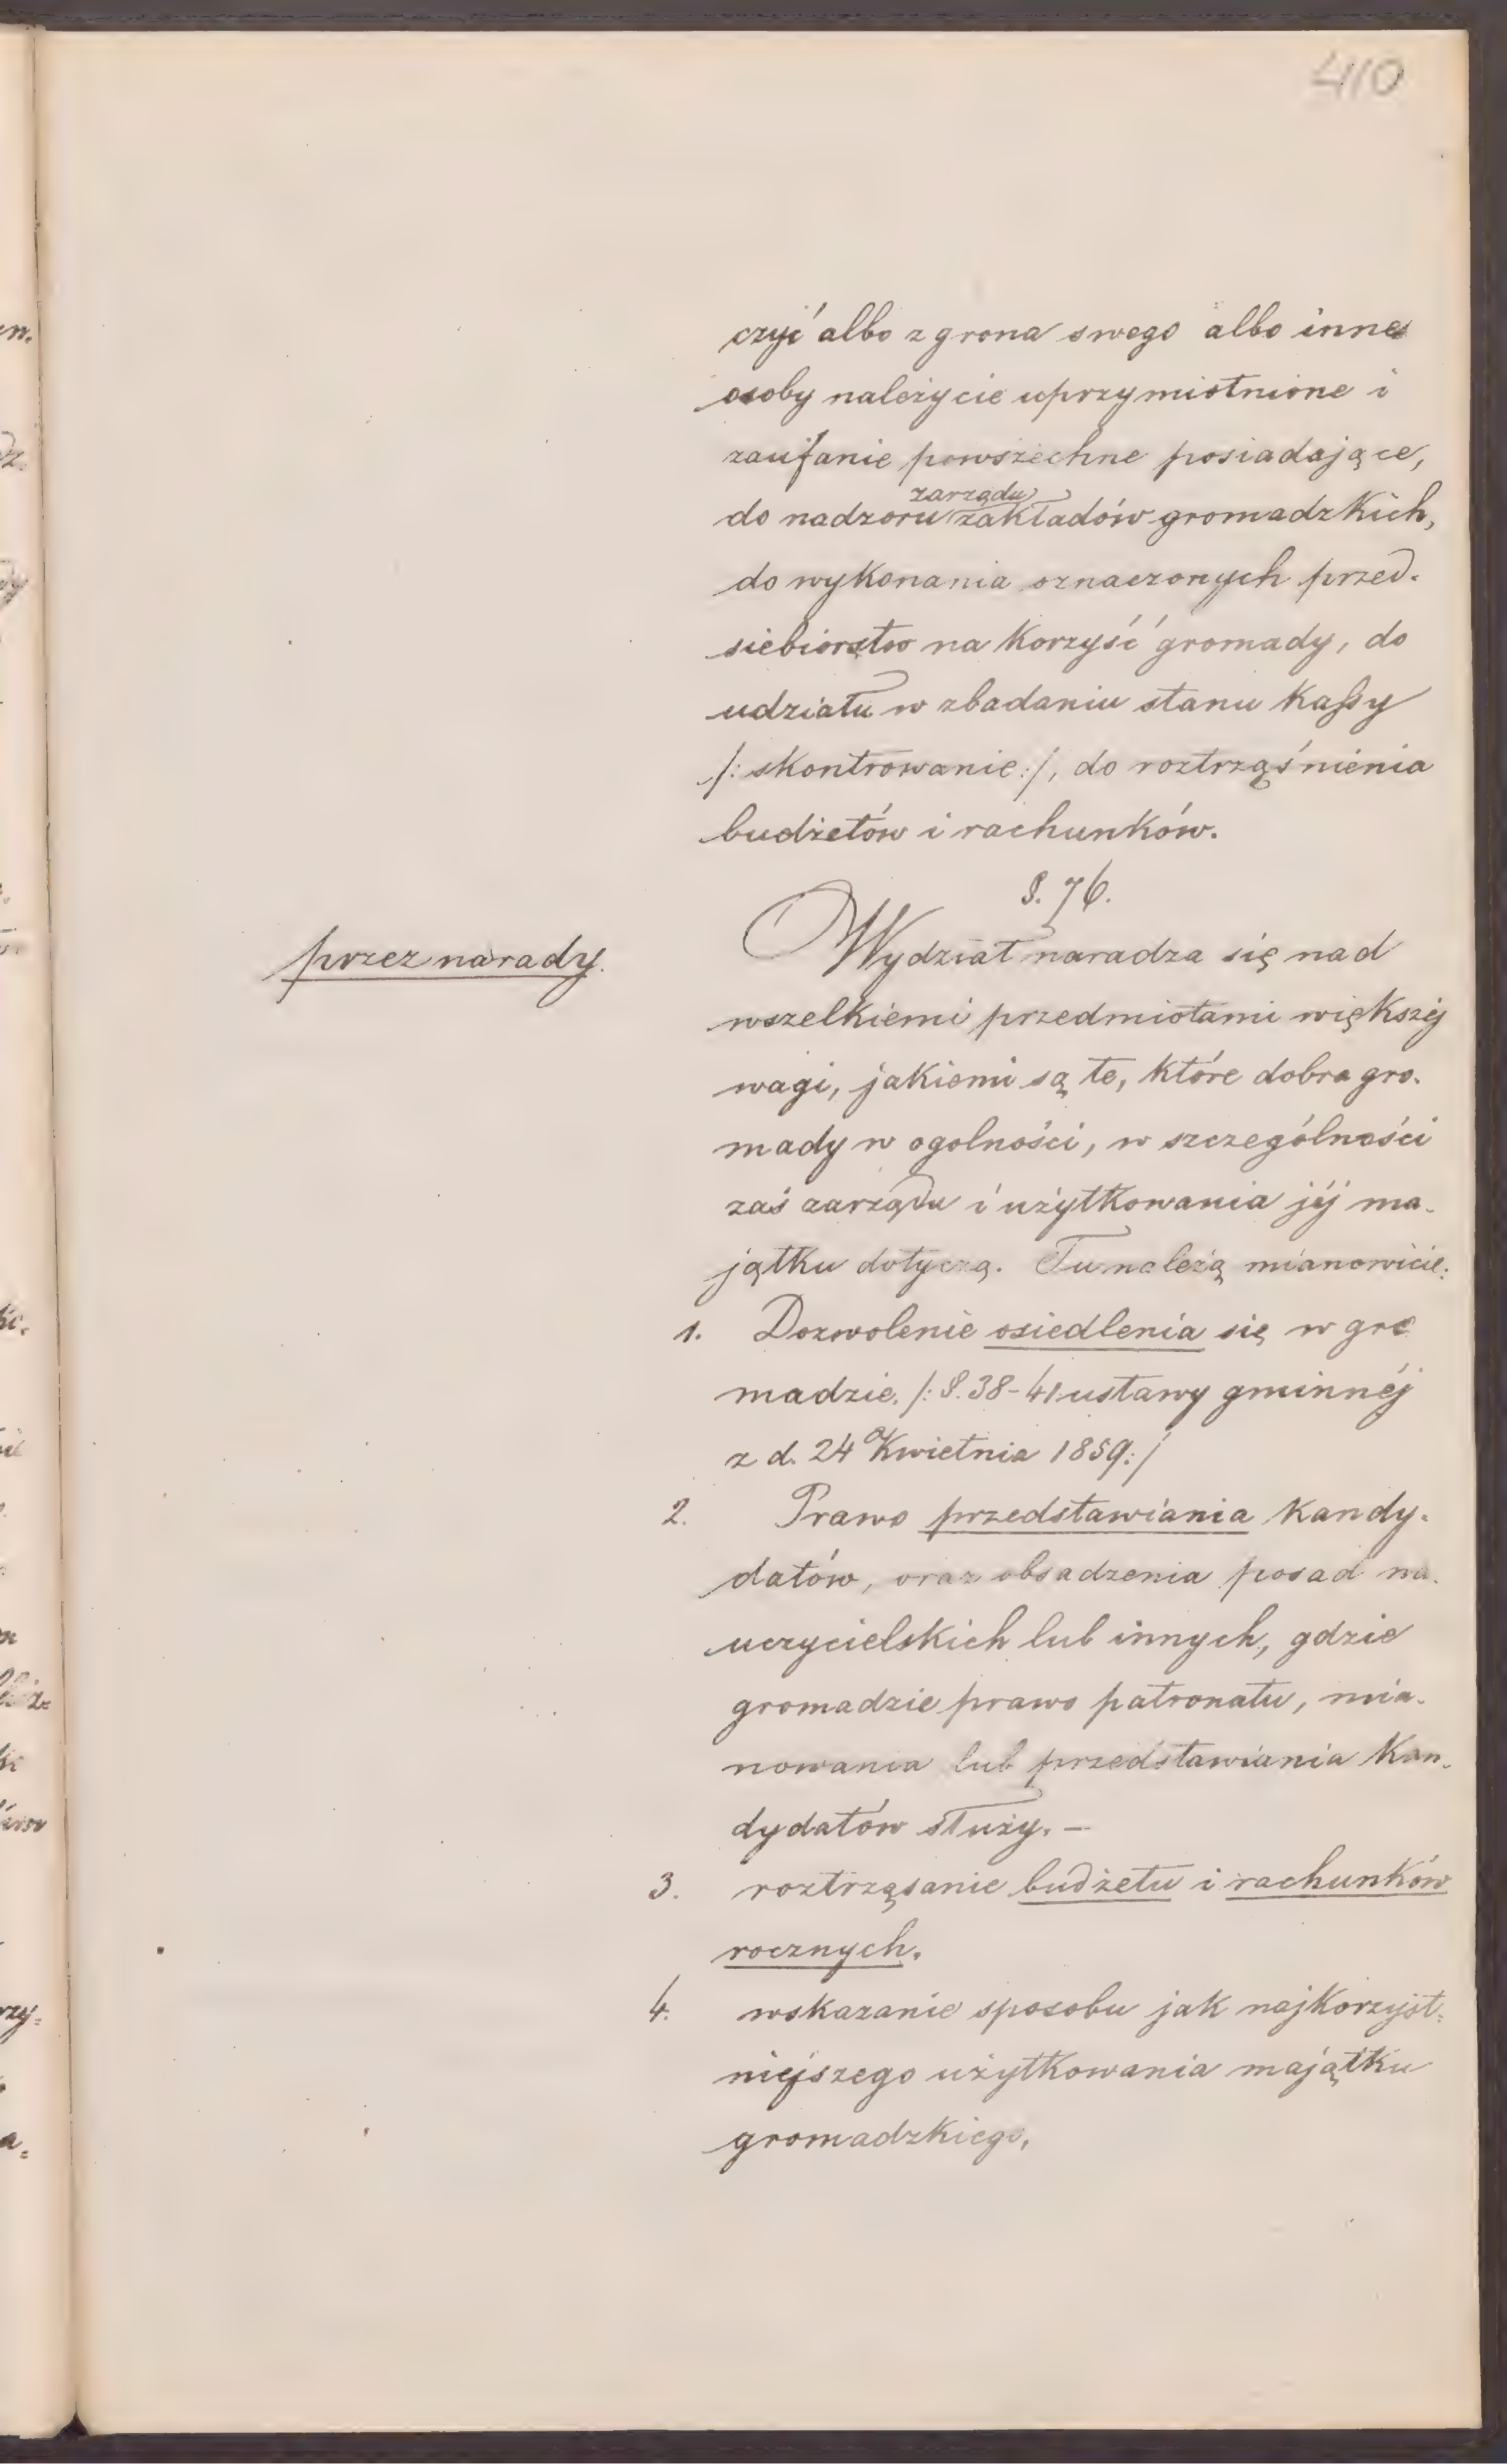 410
czyć albo z grona swego albo inne
osoby należycie uprzymiotnione i
zaufanie powszechne posiadające,
zarządu
do nadzoru zakładów gromadzkich,
do wykonania oznaczonych przed-
siebiorstw na korzyść gromady, do
udziału w zbadaniu stanu Kassy
/: skontrowanie :/, do roztrząśnienia
budżetów i rachunków.
§. 76.
przez narady.
Wydział naradza się nad
wszelkiemi przedmiotami większéj
wagi, jakiemi są te, które dobra gro-
mady w ogolności, w szczególności
zaś zarządu i użytkowania jéj ma-
jątku dotyczą. Tu należą mianowicie:
1. Dozwolenie osiedlenia się w gro
madzie. /: §. 38-41 ustawy gminnéj
z d. 24 Kwietnia 1859 :/
2. Prawo przedstawiania Kandy-
datów, oraz obsadzenia posad na-
uczycielskich lub innych, gdzie
gromadzie prawo patronatu, mia-
nowania lub przedstawiania Kan-
dydatów służy. —
3. roztrząsanie budżetu i rachunków
rocznych.
4. wskazanie sposobu jak najkorzyst-
niejszego użytkowania majątku
gromadzkiego,